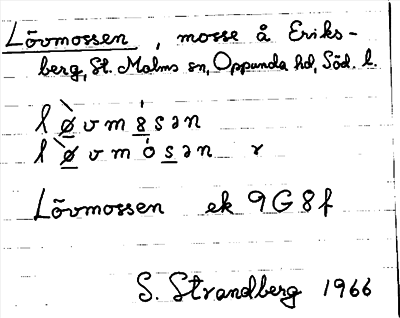 Lövmossen, mosse å Eriks-
berg, St. Malms sn, Oppunda hd, Söd. l.
lø̀vmósən
lø̀vmósən r
Lövmossen ek 9G8f
S. Strandberg 1966